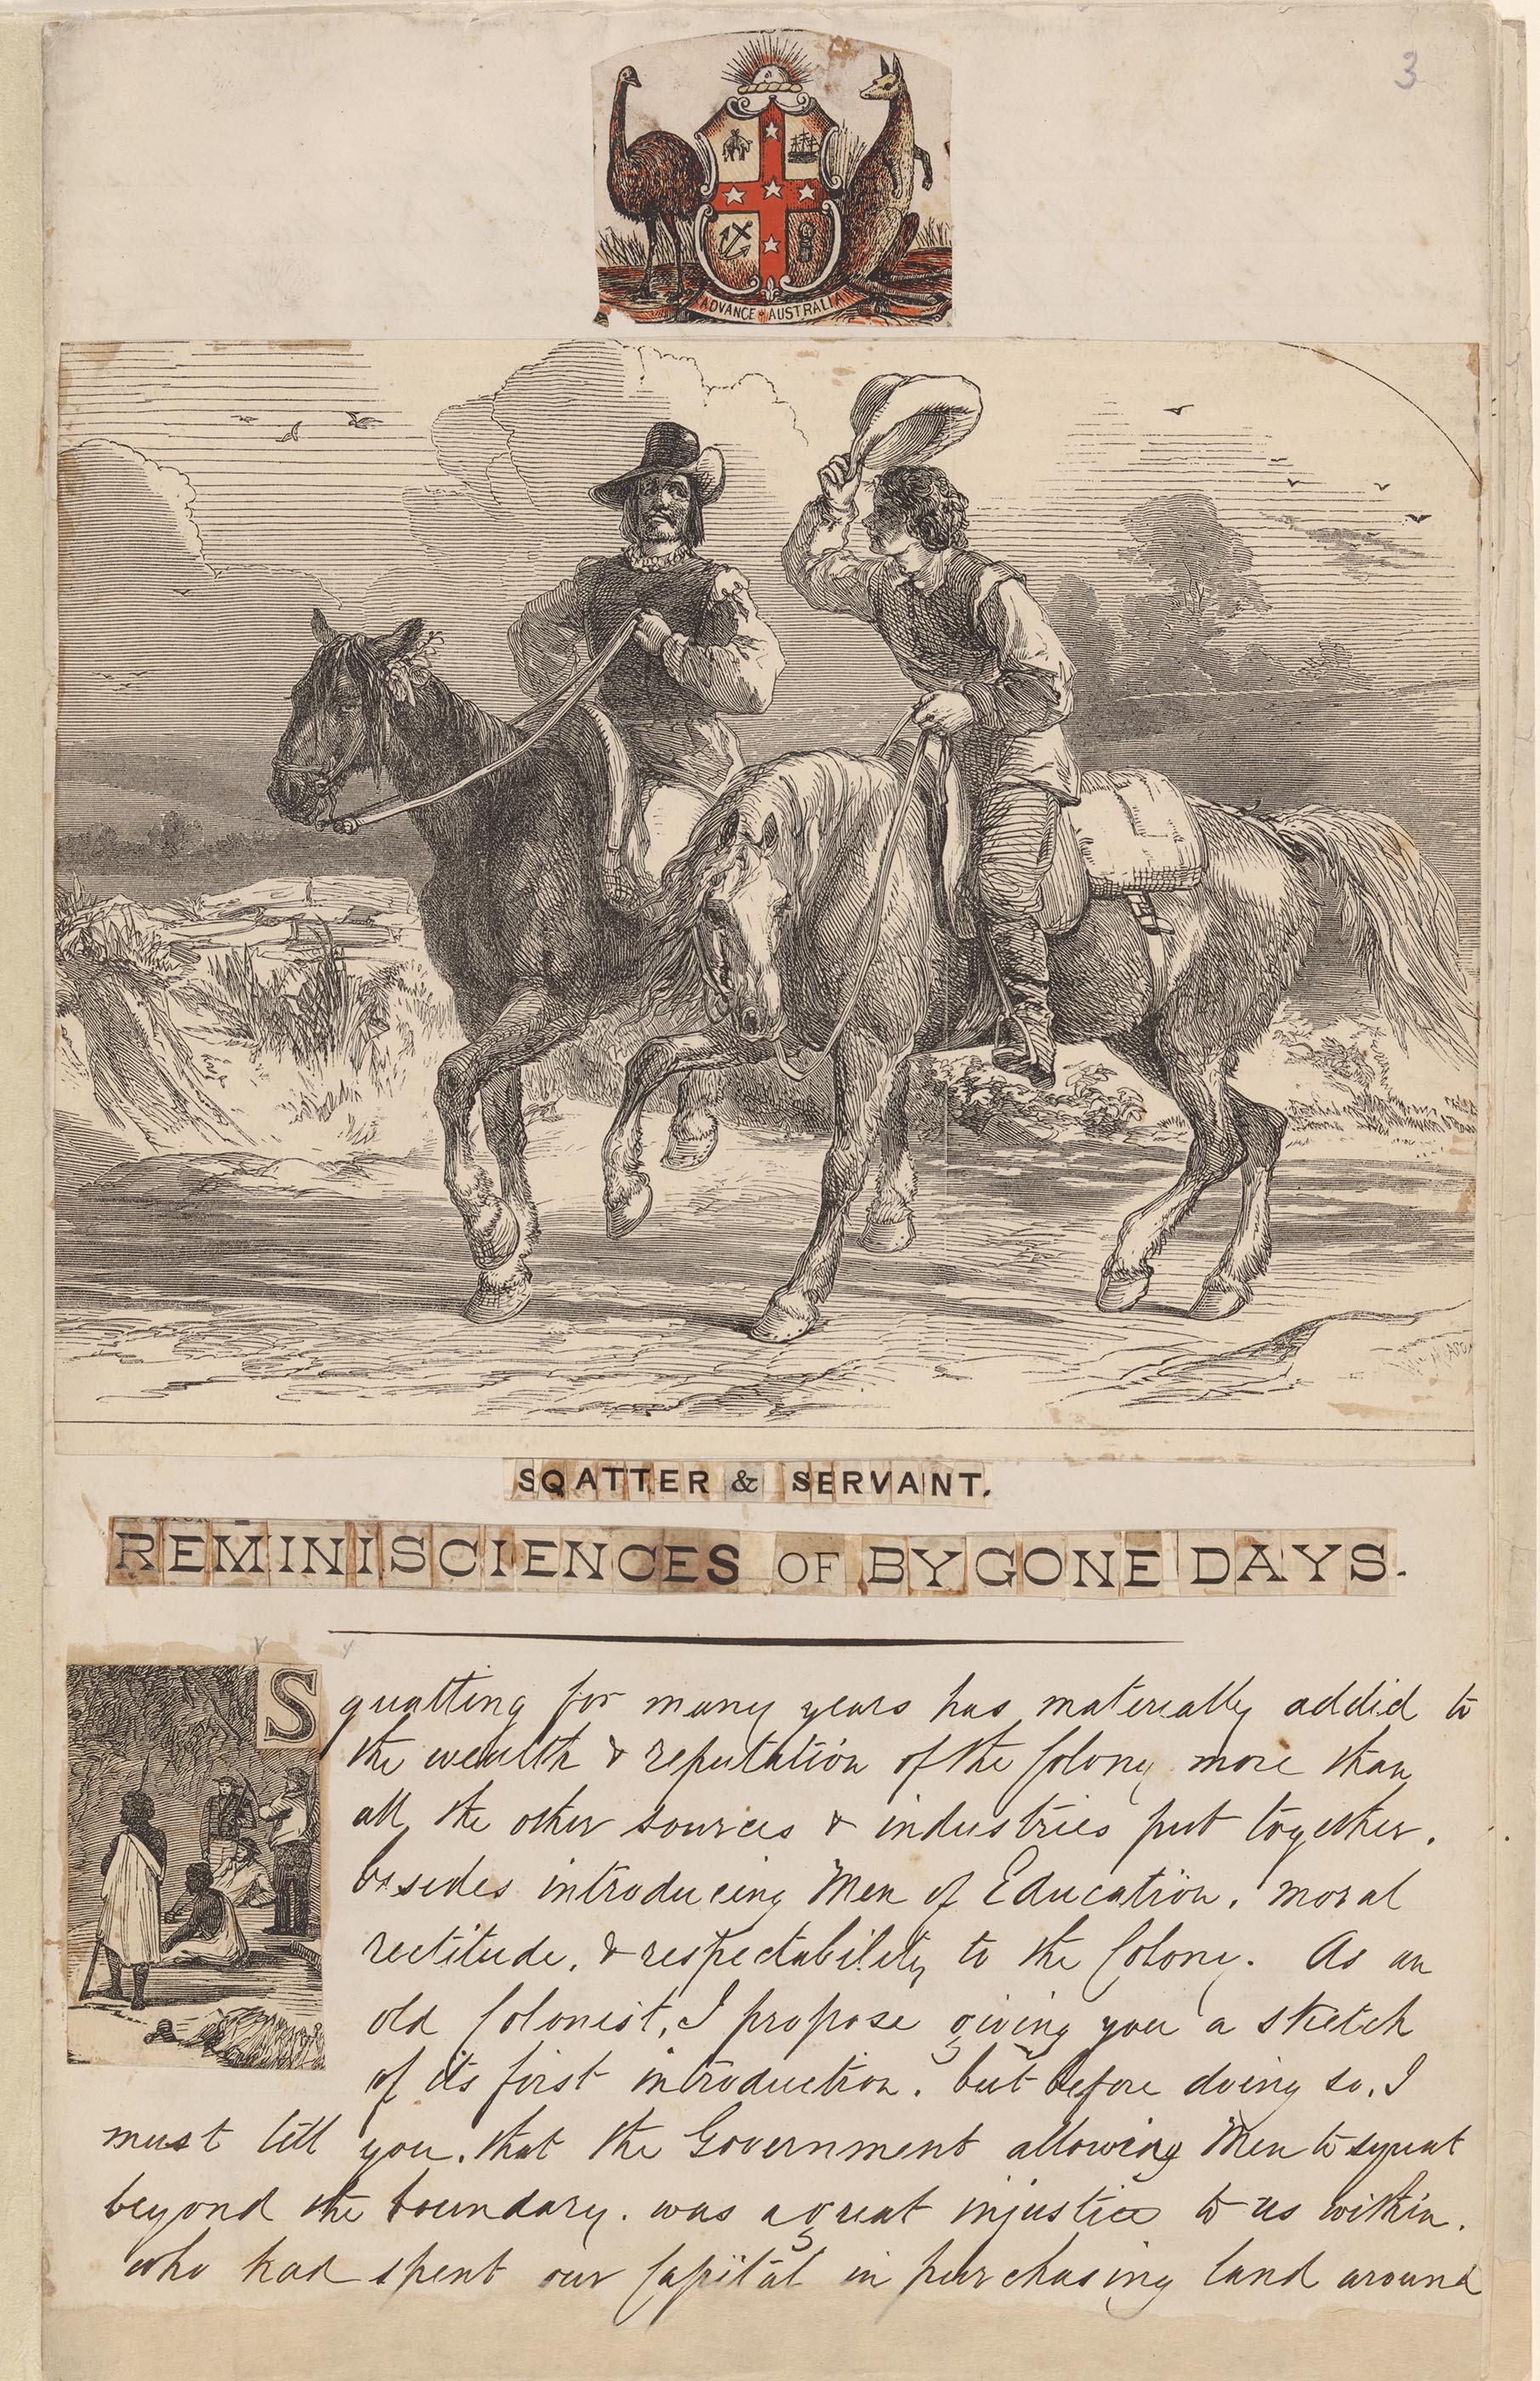 3
ADVANCE AUSTRALIA
SQATTER & SERVANT.
REMINISCIENCES OF BYGONE DAYS.
Squatting for many years has materially added to
the wealth & reputation of the Colony more than
all the other sources & industries put together.
besides introducing Men of Education, moral
rectitude, & respectability to the Colony. As an
old Colonist, I propose giving you a sketch
of its first introduction. but before doing so, I
must tell you. that the Government allowing Men to squat
beyond the boundary. was a great injustice to us within.
who had spent our Capital in purchasing land around